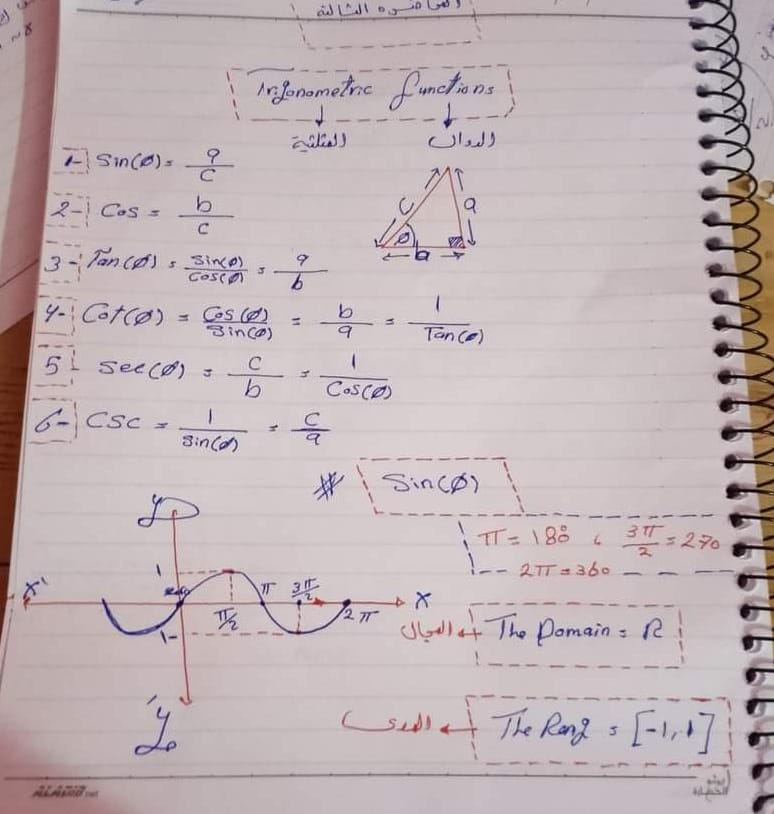 المحاضره الثالثة
Trigonometric functions
المثلثية الدوال
1- Sin(Ø) = a/c
2- Cos = b/c
c a
Ø
b
3- Tan(Ø) = Sin(Ø)/Cos(Ø) = a/b
4- Cot(Ø) = Cos(Ø)/Sin(Ø) = b/a = 1/Tan(Ø)
5- Sec(Ø) = c/b = 1/Cos(Ø)
6- CSC = 1/Sin(Ø) = c/a
# Sin(Ø)
π = 180° , 3π/2 = 270
2π = 360
y
1
x' π/2 π 3π/2 2π x
1-
y'
المجال ← The Domain = R
المدى ← The Rang = [-1, 1]